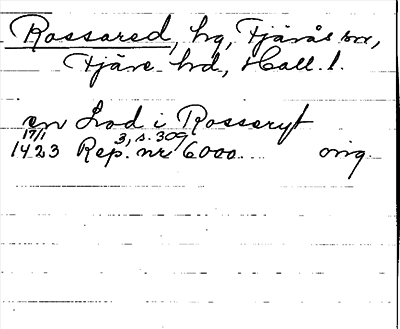 Rossared, hg, Fjärås sn,
Fjäre hd, Hall. l.
en Lod i Rosseryt
17/1 3, s. 309
1423 Rep. nr 6000 orig.